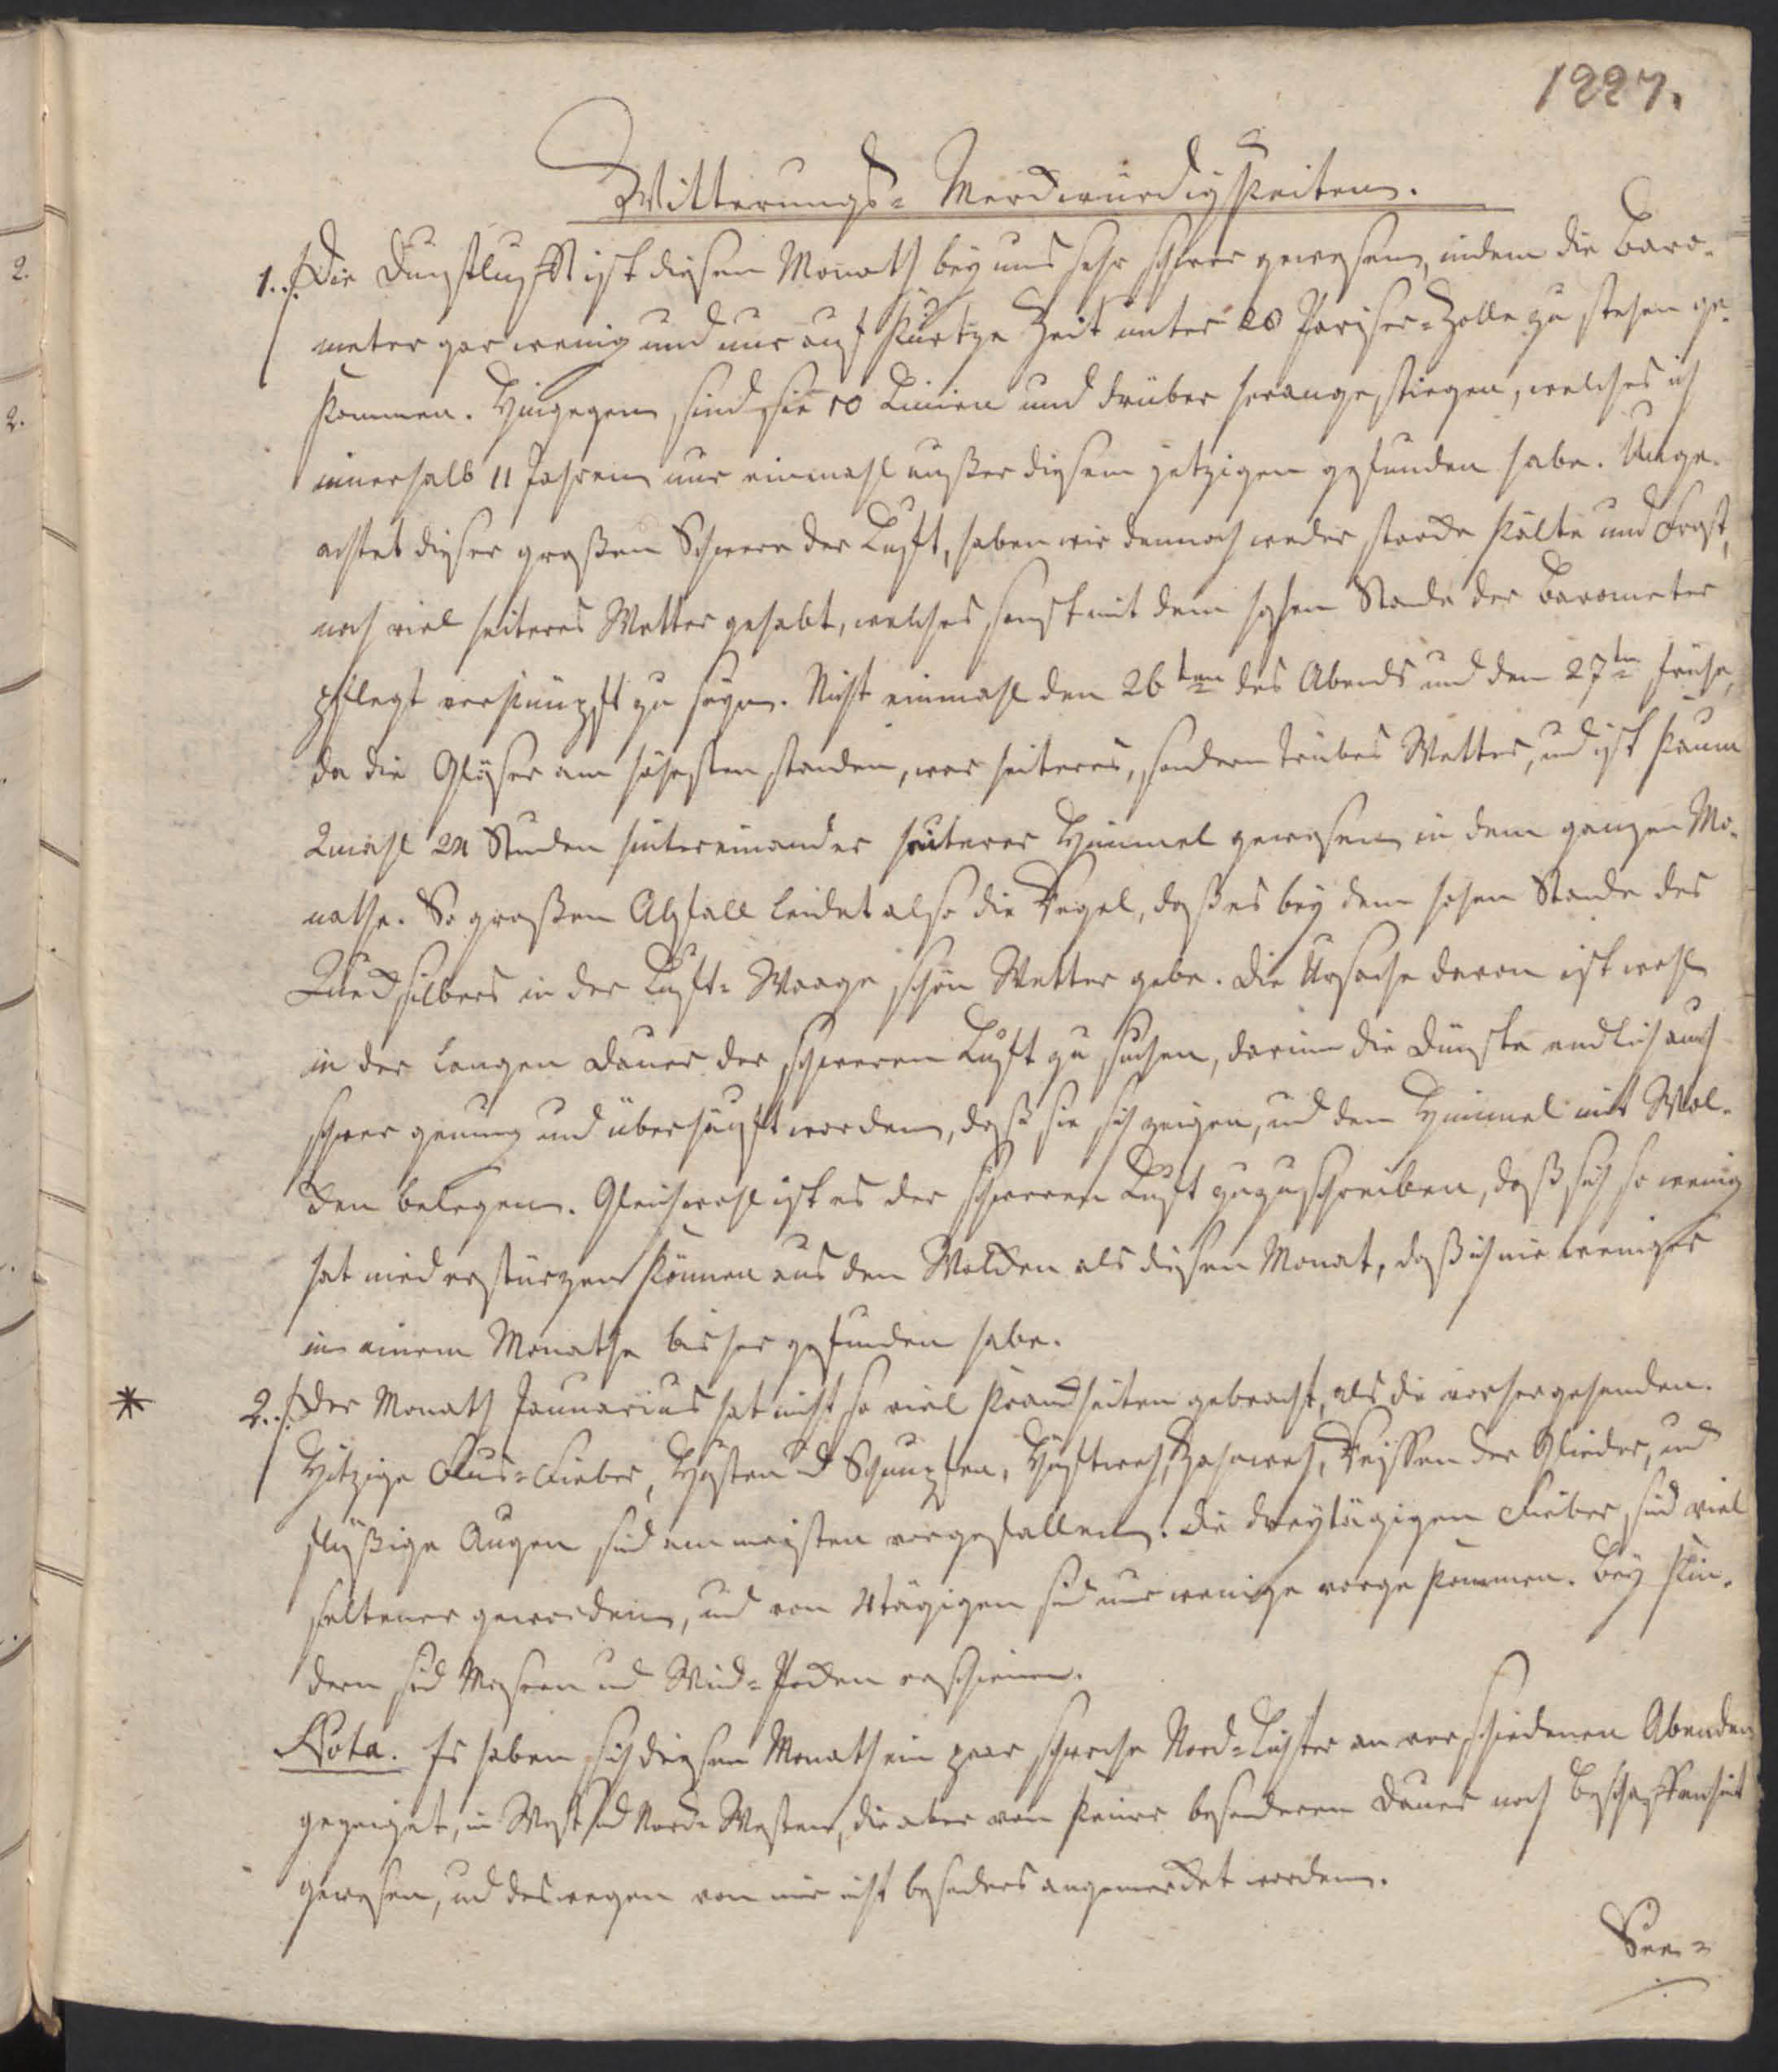 1227.
Witterungs- Merckwürdigkeiten.
1../. Die Dunstlufft ist diesen Monath bey uns sehr schwer gewesen, indem die Baro-
meter gar wenig und nur auf kurtze Zeit unter 28 Pariser-Zolle zu stehen ge-
kommen. Hingegen sind sie 10 Linien und drüber herangestiegen, welches ich
innerhalb 11 Jahren nur einmahl außer diesem jetzigen gefunden habe. Unge-
achtet dieser großen Schwere der Luft, haben wir dennoch weder starcke Kälte und Frost,
noch viel heiteres Wetter gehabt, welches sonst mit dem hohen Stande der Barometer
pflegt verknüpft zu seyn. Nicht einmahl den 26ten des Abends und den 27tn frühe,
da die Gläser am höhesten standen, war heiteres, sondern trübes Wetter, und ist kaum
2mahl 24 Stunden hintereinander heiterer Himmel gewesen in dem ganzen Mo-
nathe. So großen Abfall leidet also die Regel, daß es bey dem hohen Stande des
Quecksilbers in der Luft-Waage schön Wetter gebe. Die Ursache davon ist wohl
in der langen Dauer der schweren Luft zu suchen, darinn die Dünste endlich auch
schwer genung und überhäuft worden, daß sie sich zeigen, und den Himmel mit Wol-
cken belegen. Gleichwohl ist es der schweren Luft zuzuschreiben, daß sich so wenig
hat niederstürzen können aus den Wolcken als diesen Monat, daß ich nie weniger
in einem Monathe bisher gefunden habe.
* 2../. Der Monath Januarius hat nicht so viel Kranckheiten gebracht, als die vorhergehenden.
Hitzige Flus-Fieber, Husten und Schnupfen, Hüftweh, Zahnweh, Reissen der Glieder, und
flüßige Augen sind am meisten vorgefallen. Die dreytägigen Fieber sind viel
seltener geworden, und von 4tägigen sind nur wenige vorgekommen. Bey Kin-
dern sind Masern und Wind-Pocken erschienen.
Nota. Es haben sich diesen Monath ein paar schwache Nord-Lichter an verschiedenen Abenden
gezeiget, in West und Nord-Westen, die aber von keiner besonderen Dauer noch Beschaffenheit
gewesen, und deswegen von mir nicht besonders angemercket worden.